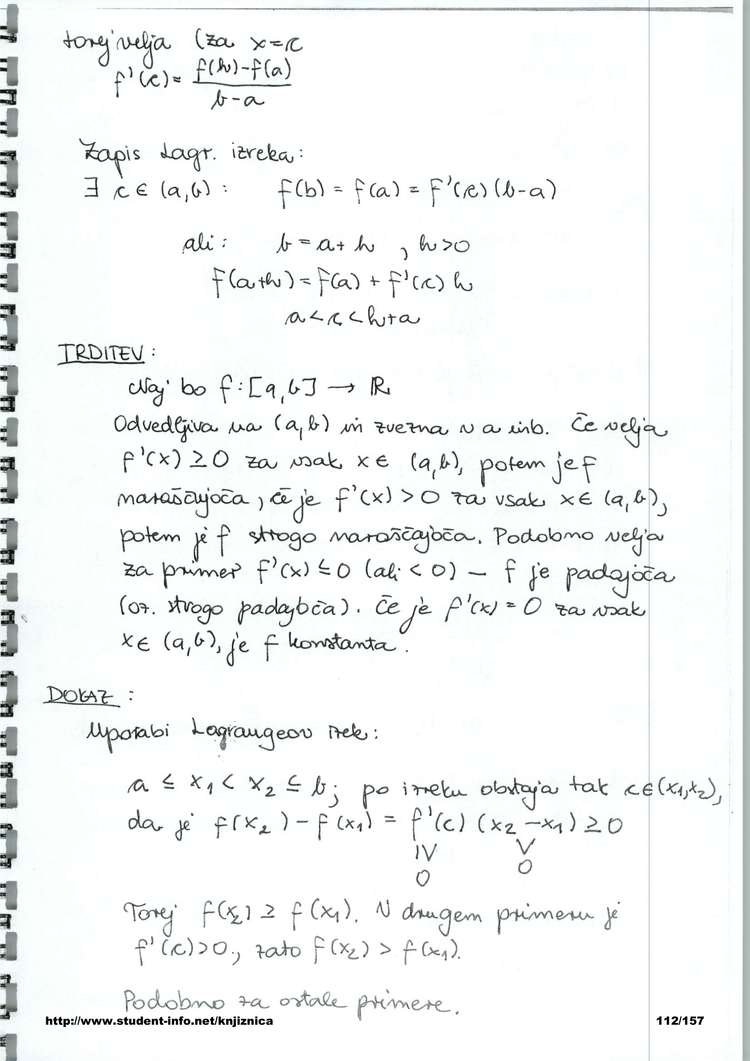 torej velja (za x=c
f'(c) = f(b)-f(a) / b-a
Zapis Lagr. izreka:
∃ c ∈ (a,b) : f(b) = f(a) = f'(c)(b-a)
ali : b = a+h , h>0
f(a+h) = f(a) + f'(c) h
a<c<h+a
TRDITEV :
Naj bo f : [a,b] → R
Odvedljiva na (a,b) in zvezna v a in b. Če velja
f'(x) ≥ 0 za vsak x ∈ (a,b), potem je f
naraščajoča, če je f'(x) > 0 za vsak x ∈ (a,b),
potem je f strogo naraščajoča. Podobno velja
za primer f'(x) ≤ 0 (ali < 0) – f je padajoča
(oz. strogo padajoča). Če je f'(x) = 0 za vsak
x ∈ (a,b), je f konstanta.
DOKAZ :
Uporabi Lagrangeov izrek:
a ≤ x₁ < x₂ ≤ b; po izreku obstaja tak c∈(x₁,x₂),
da je f(x₂) - f(x₁) = f'(c) (x₂ - x₁) ≥ 0
IV V
0 0
Torej f(x₂) ≥ f(x₁). V drugem primeru je
f'(c)>0., zato f(x₂) > f(x₁).
Podobno za ostale primere.
http://www.student-info.net/knjiznica 112/157